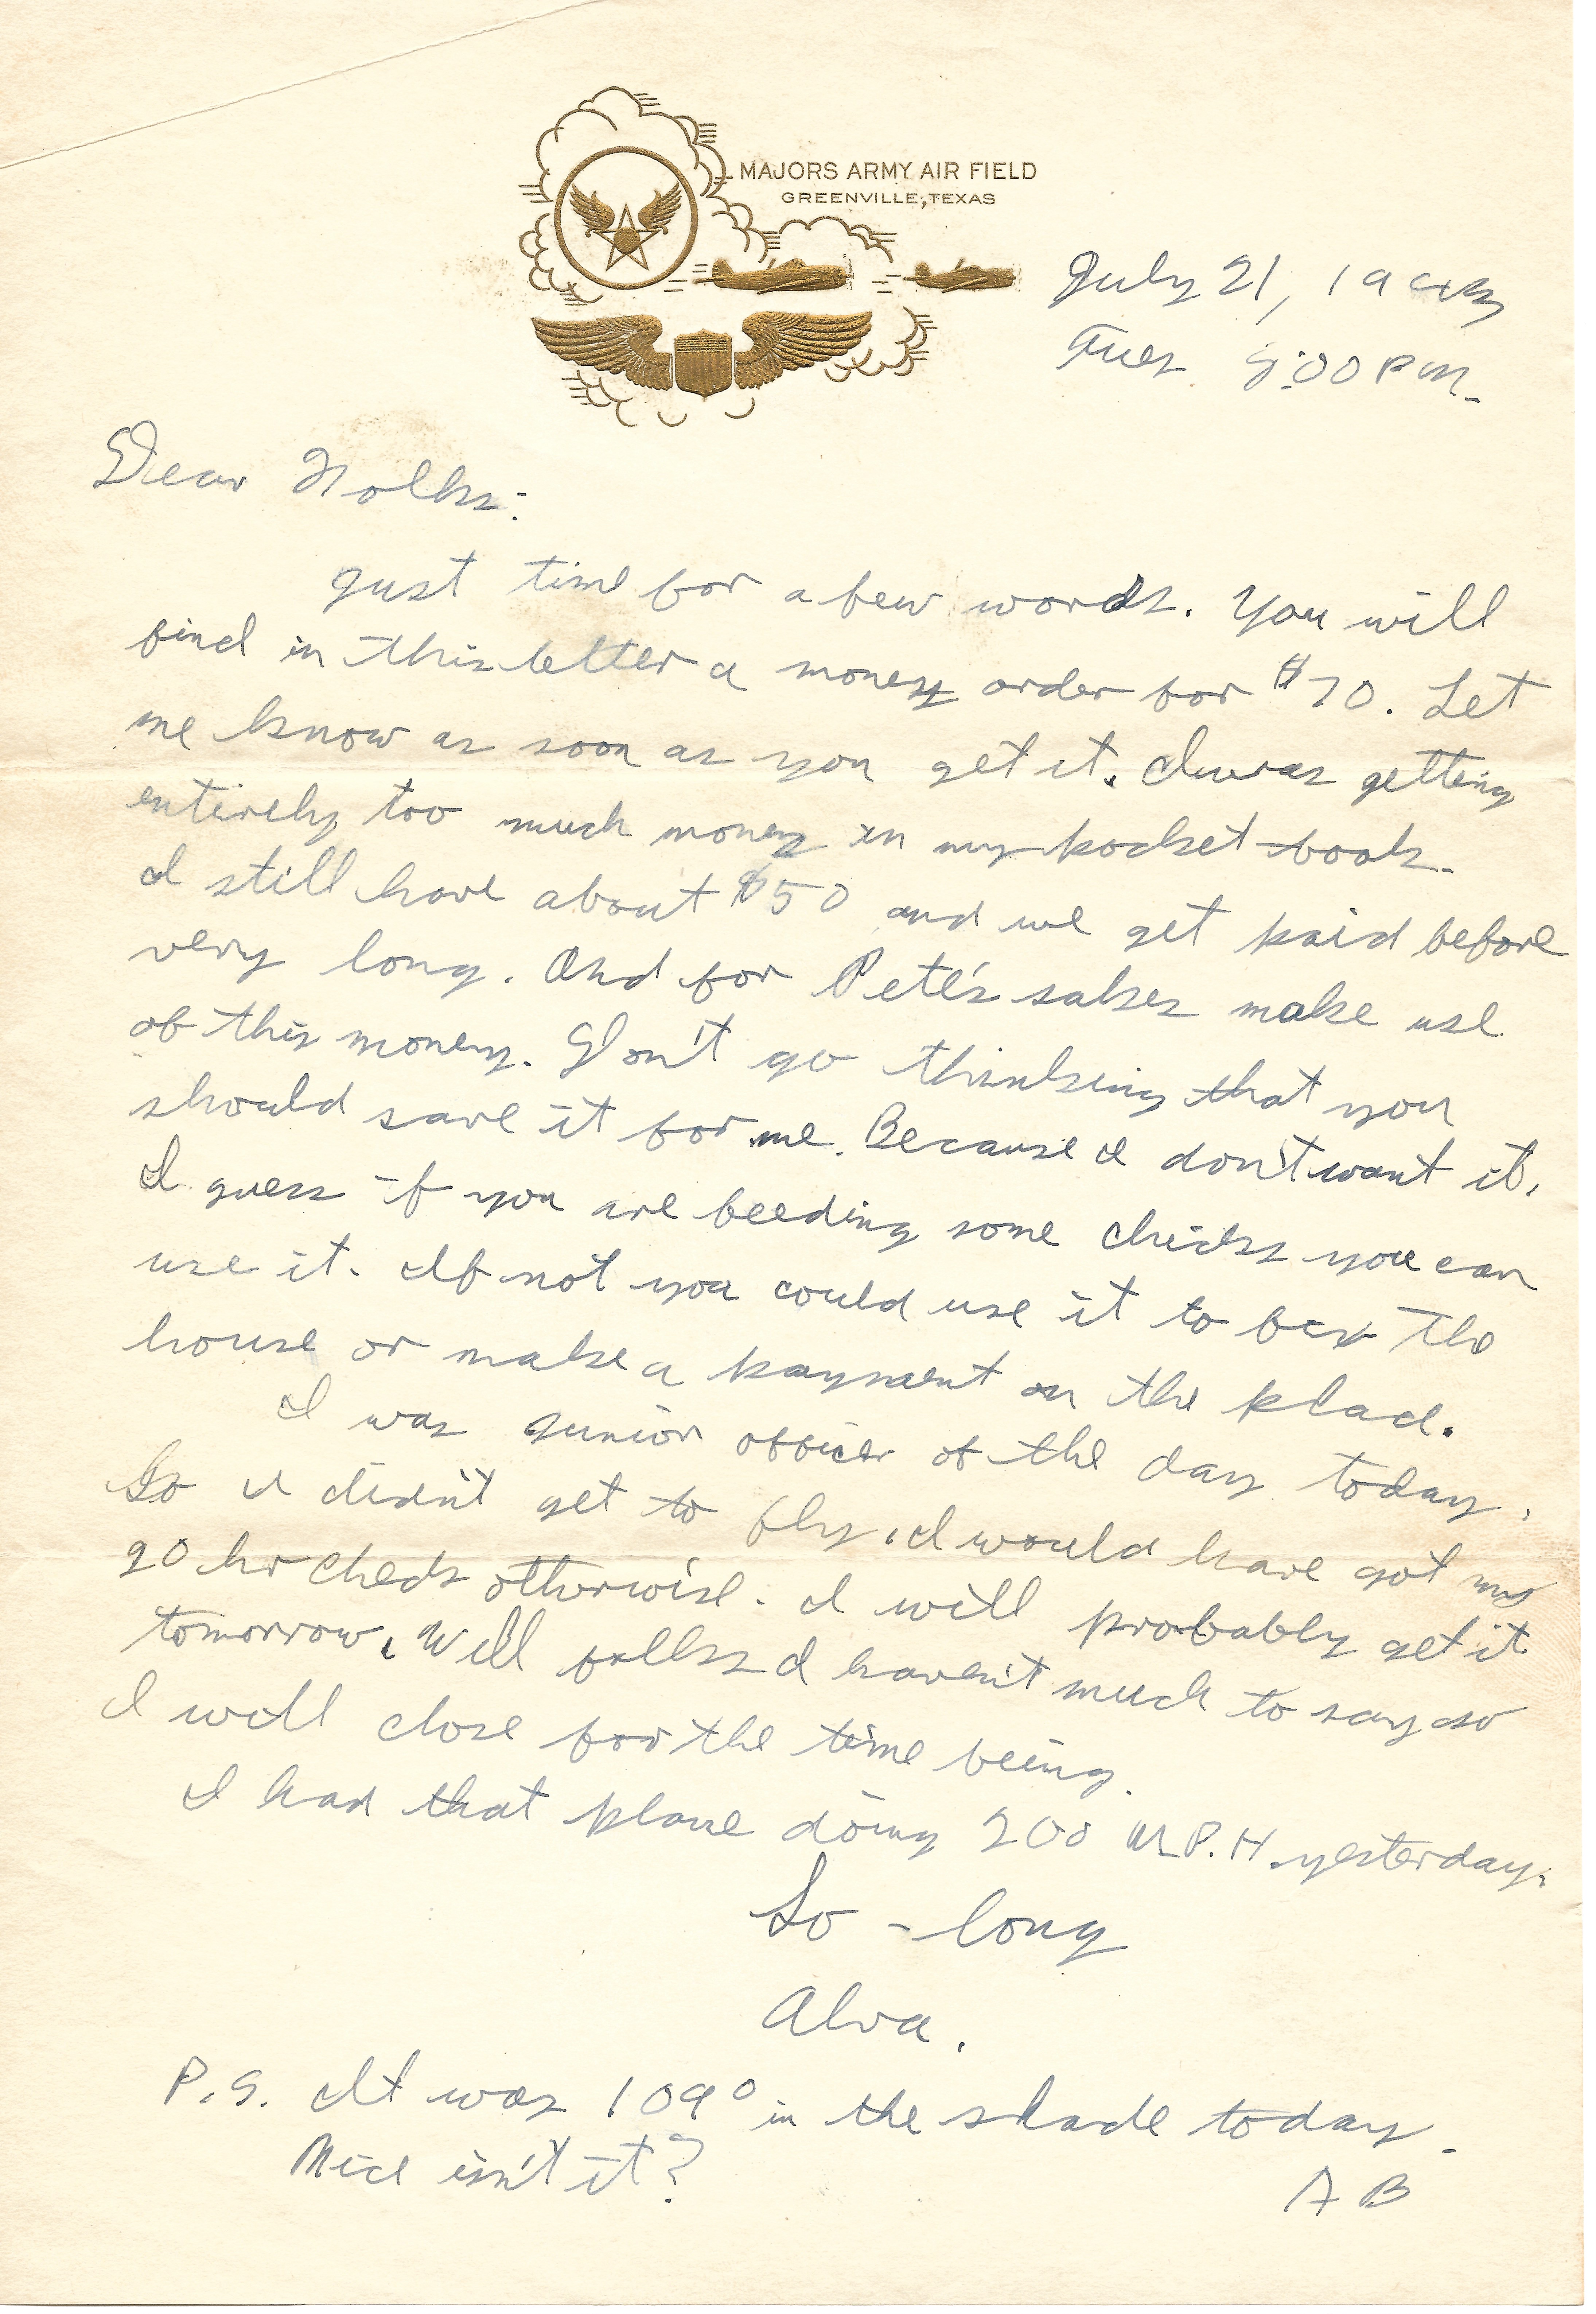 MAJORS ARMY AIR FIELD
GREENVILLE, TEXAS
July 21, 1943
Tues 9:00 P.M.
Dear Folks:
Just time for a few words. You will
find in this letter a money order for $70. Let
me know as soon as you get it. I was getting
entirely too much money in my pocket book.
I still have about $50 and we get paid before
very long. And for Pete's sakes make use
of this money. Don't go thinking that you
should save it for me. Because I don't want it.
I guess if you are feeding some chicks you can
use it. If not you could use it to fix the
house or make a payment on the place.
I was junior officer of the day today.
So I didn't get to fly. I would have got my
20 hr check otherwise. I will probably get it
tomorrow. Well folks I haven't much to say so
I will close for the time being.
I had that plane doing 200 M.P.H. yesterday.
So-long
Alva.
P.S. It was 109° in the shade today.
Nice isn't it?
AB